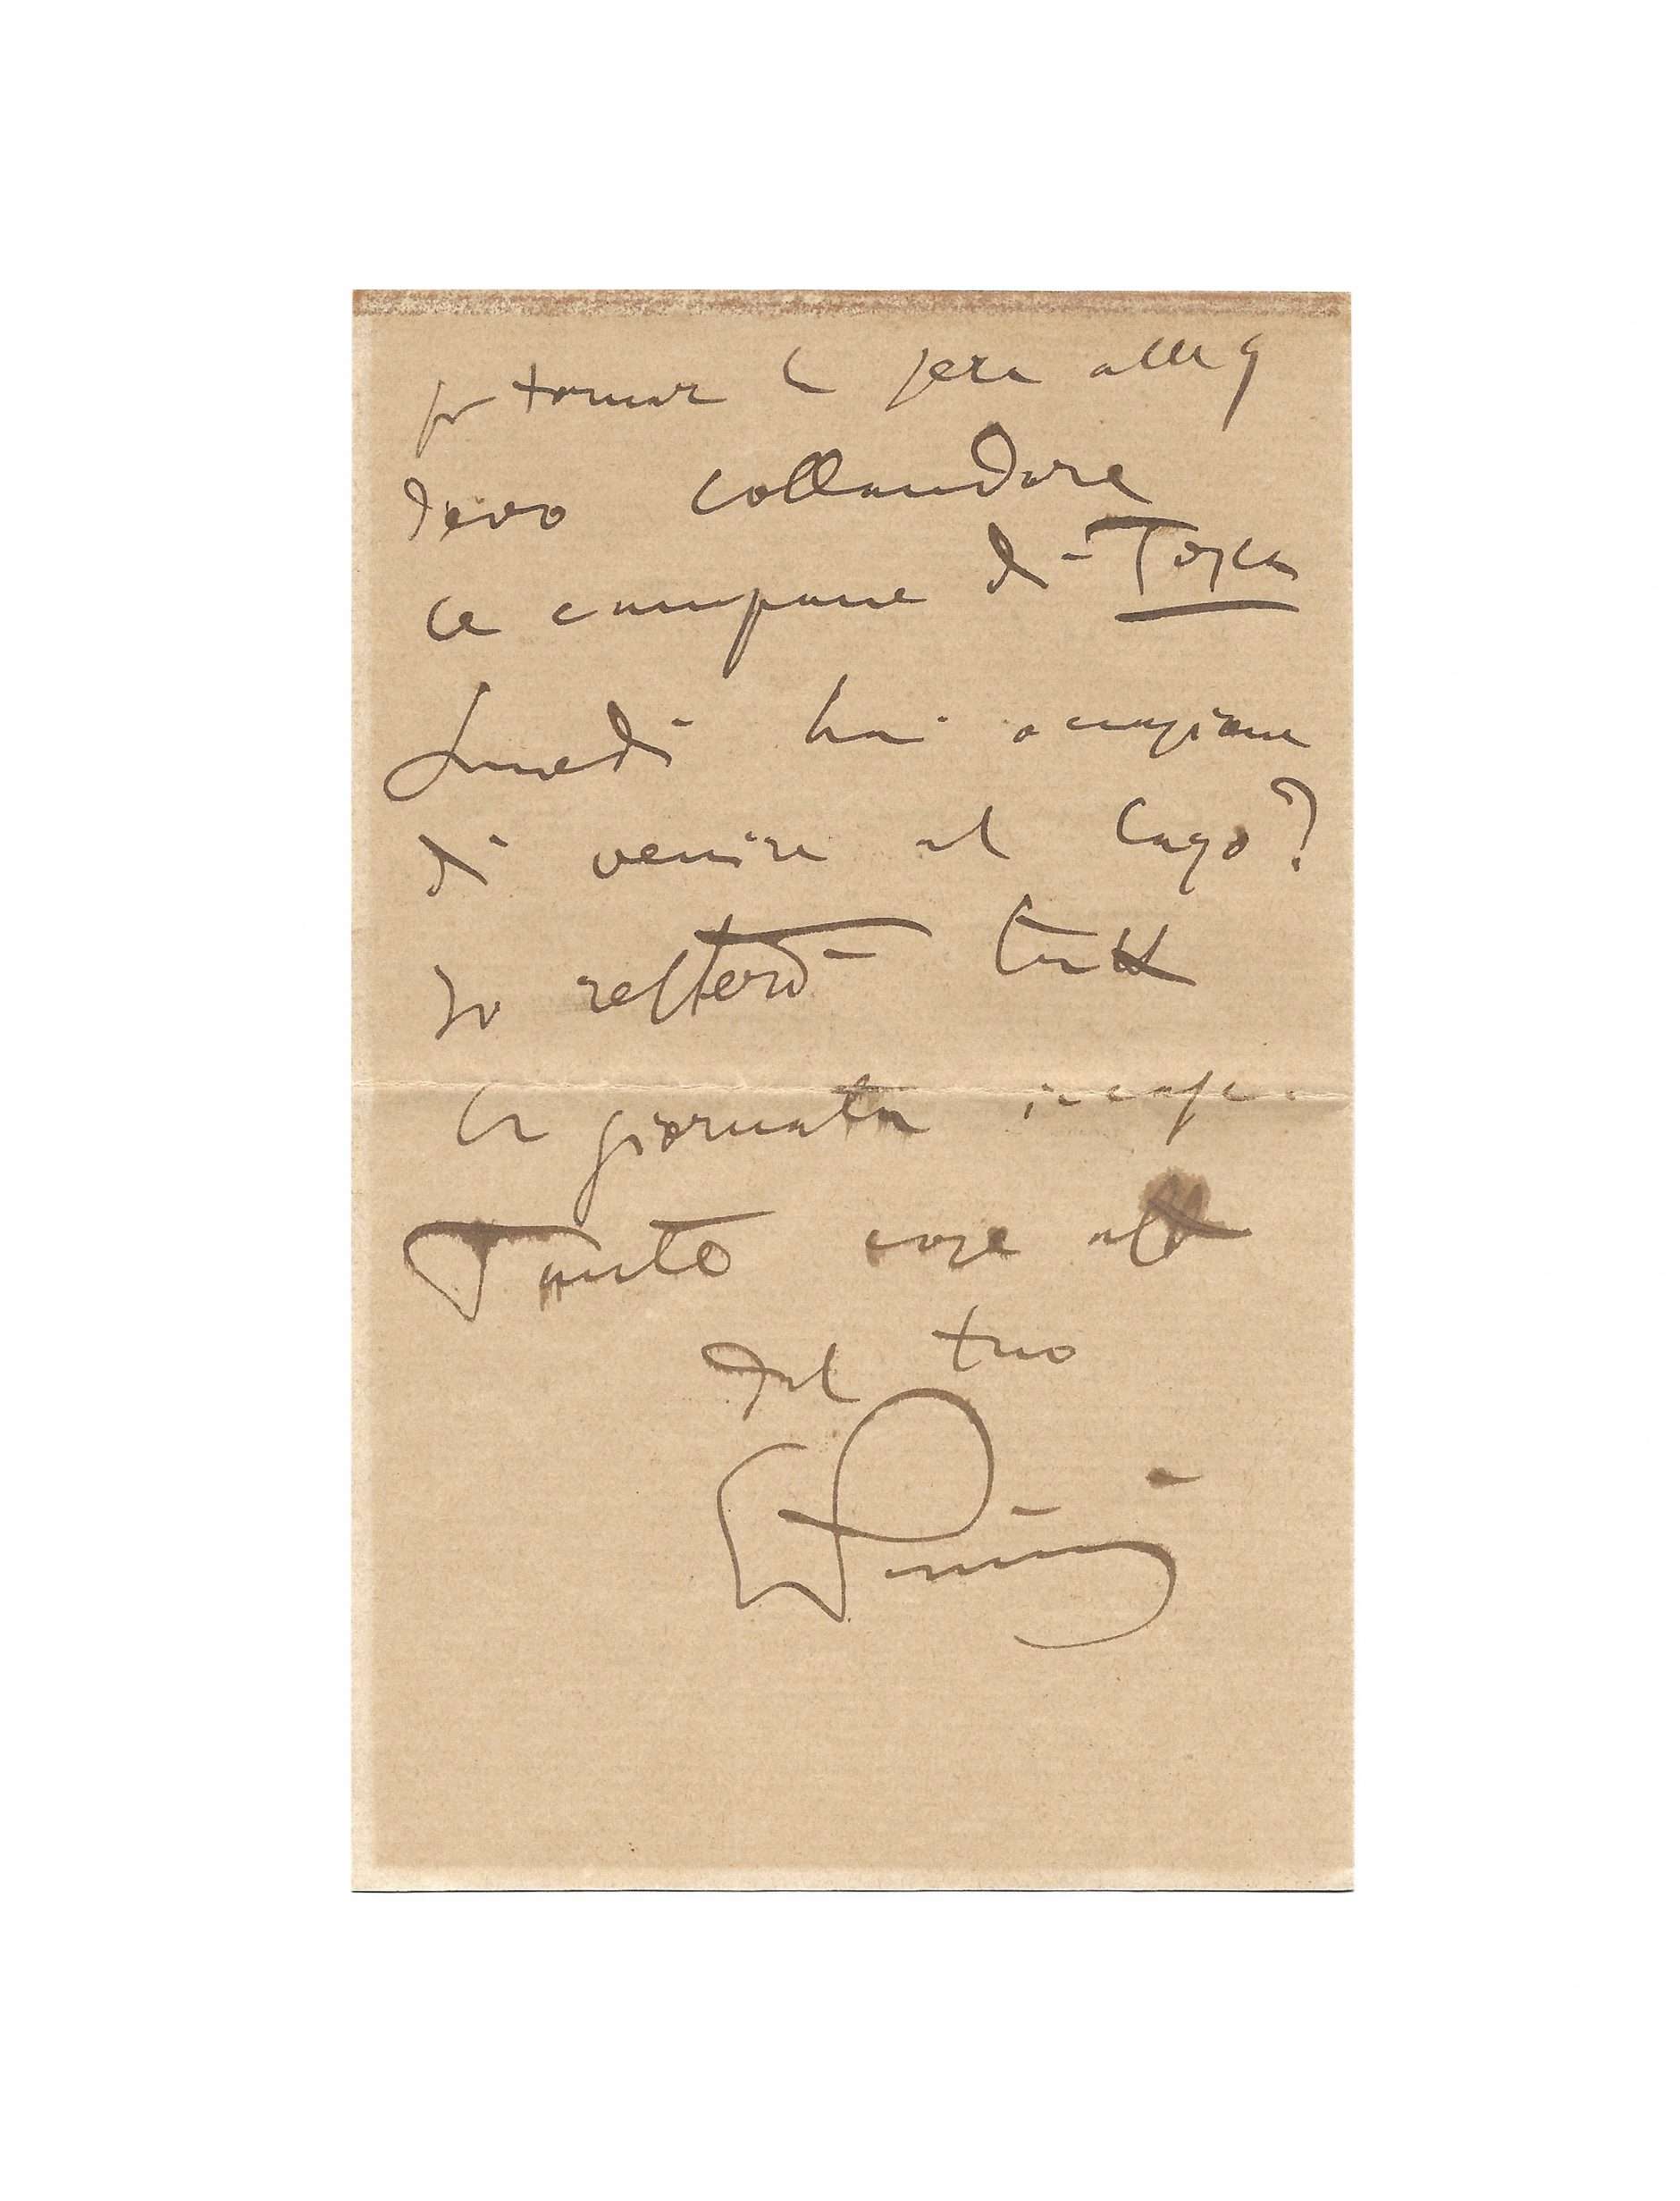 per tornar la sera alle 9
devo collaudare
le campane di Tosca
Lunedì hai occasione
di venire al Lago?
Io resterò tutta
la giornata in casa.
Tante cose aff
dal tuo
GPuccini